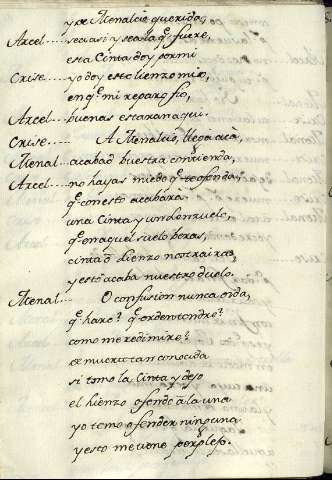 y de Menalcio querida,
Arcel.... seasi y sea la q̃ fuere,
esta Cinta doy por mi
Crise.... yo doy este lienzo mio,
en q̃ mi reparo fio,
Arcel.... buenas estaran aqui.
Crise.... A Menalcio, llega acà,
Menal.... acabad buestra contienda,
Arcel.... no hayas miedo q̃ te ofenda,
q̃ con esto acabarà
una Cinta y un
q̃ en aquel suelo
cinta ò lienzo nos trairas,
y esto acaba nuestro duelo.
Menal.... O confusion nunca oida,
q̃ harè? q̃ orden tendre?
como me redimire?
de muerte tan conocida
si tomo la Cinta y dejo
el lienzo ofendo à la una
yo temo ofender ninguna
y esto me tiene perplejo.